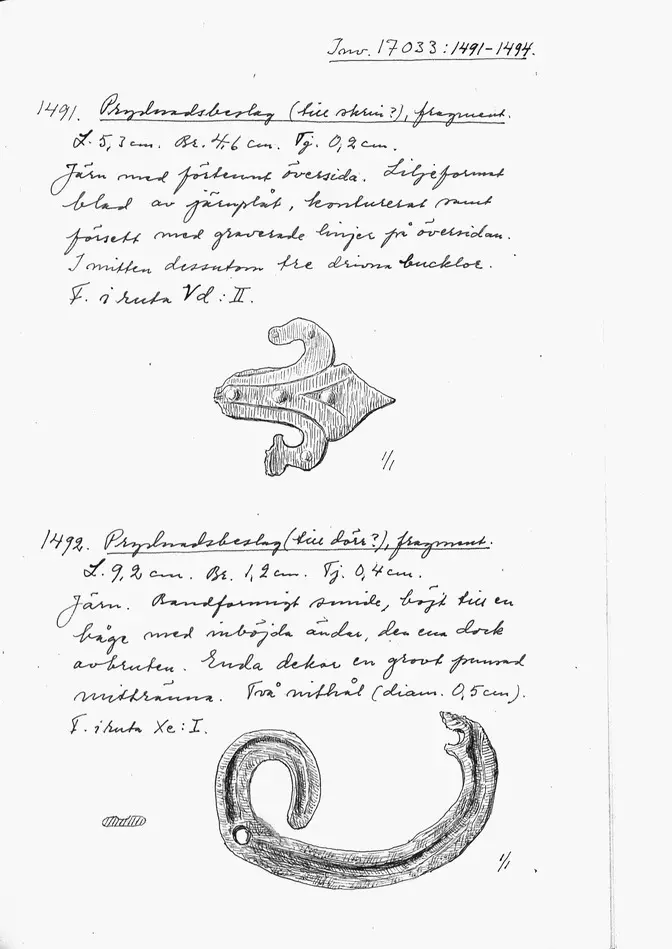 Inv. 17033:1491-1494.
1491. Prydnadsbeslag (till skrin?), fragment.
L. 5,3 cm. Br. 4,6 cm. Tj. 0,2 cm.
Järn med förtennt översida. Liljeformat
blad av järnplåt, konturerat samt
försett med graverade linjer på översidan.
I mitten dessutom tre drivna bucklor.
F. i ruta Vd:II.
1/1
1492. Prydnadsbeslag (till dörr?), fragment.
L. 9,2 cm. Br. 1,2 cm. Tj. 0,4 cm.
Järn. Bandformigt smide, böjt till en
båge med inböjda ändar, den ena dock
avbruten. Enda dekor en grovt punsad
mittränna. Två nithål (diam. 0,5 cm).
F. i ruta Xe:I.
1/1